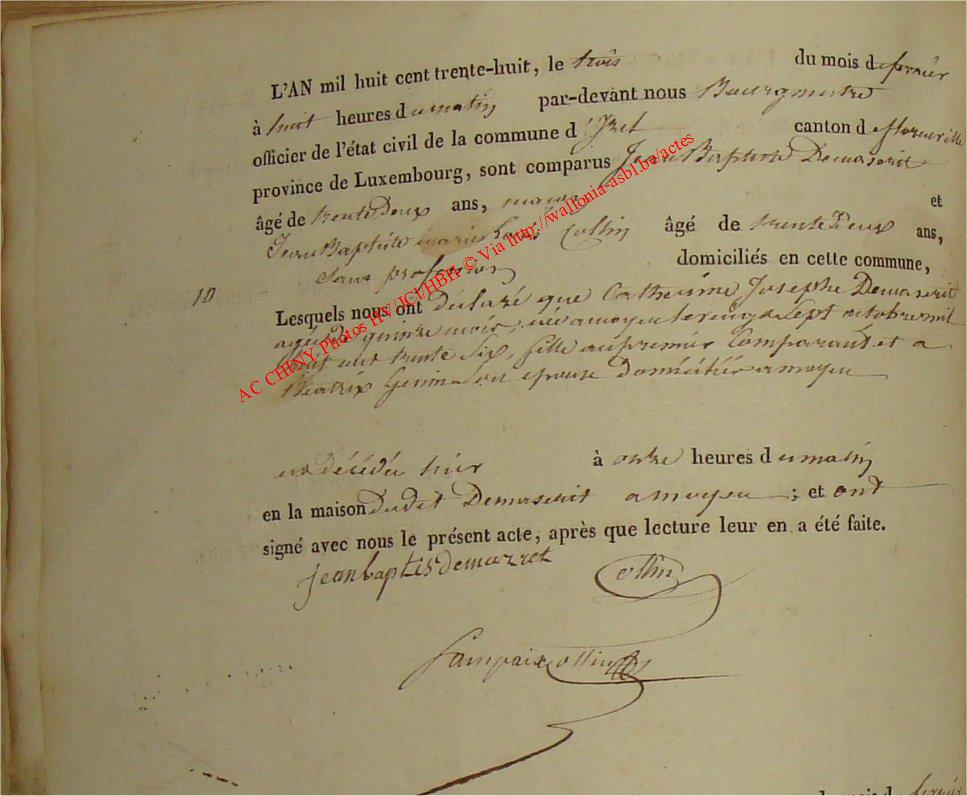 L'AN mil huit cent trente-huit, le trois du mois de fevrier
à huit heures du matin par-devant nous Bourgmestre
officier de l'état civil de la commune d'Izel canton de florenville
province de Luxembourg, sont comparus Jean Baptiste Demaseret
âgé de trente Deux ans, et
Jean Baptiste marie Collin âgé de trente Deux ans,
Sans profession domiciliés en cette commune,
10
Lesquels nous ont déclaré que Catherinne Josephe Demaserit
agée de quinze mois, née a moyen le vingt Sept octobre mil
huit cent trente Six, fille au premier Comparant et a
Béatrix Genin Son epouse Domiciliés a moyen
est décédée hier à onze heures du matin
en la maison dudit Demaserit a moyen ; et ont
signé avec nous le présent acte, après que lecture leur en a été faite.
jean baptis demazret
Collin
Lampaix collin
AC CHINY Photos HV/JCI/HBH © Via http://wallonia-asbl.be/actes